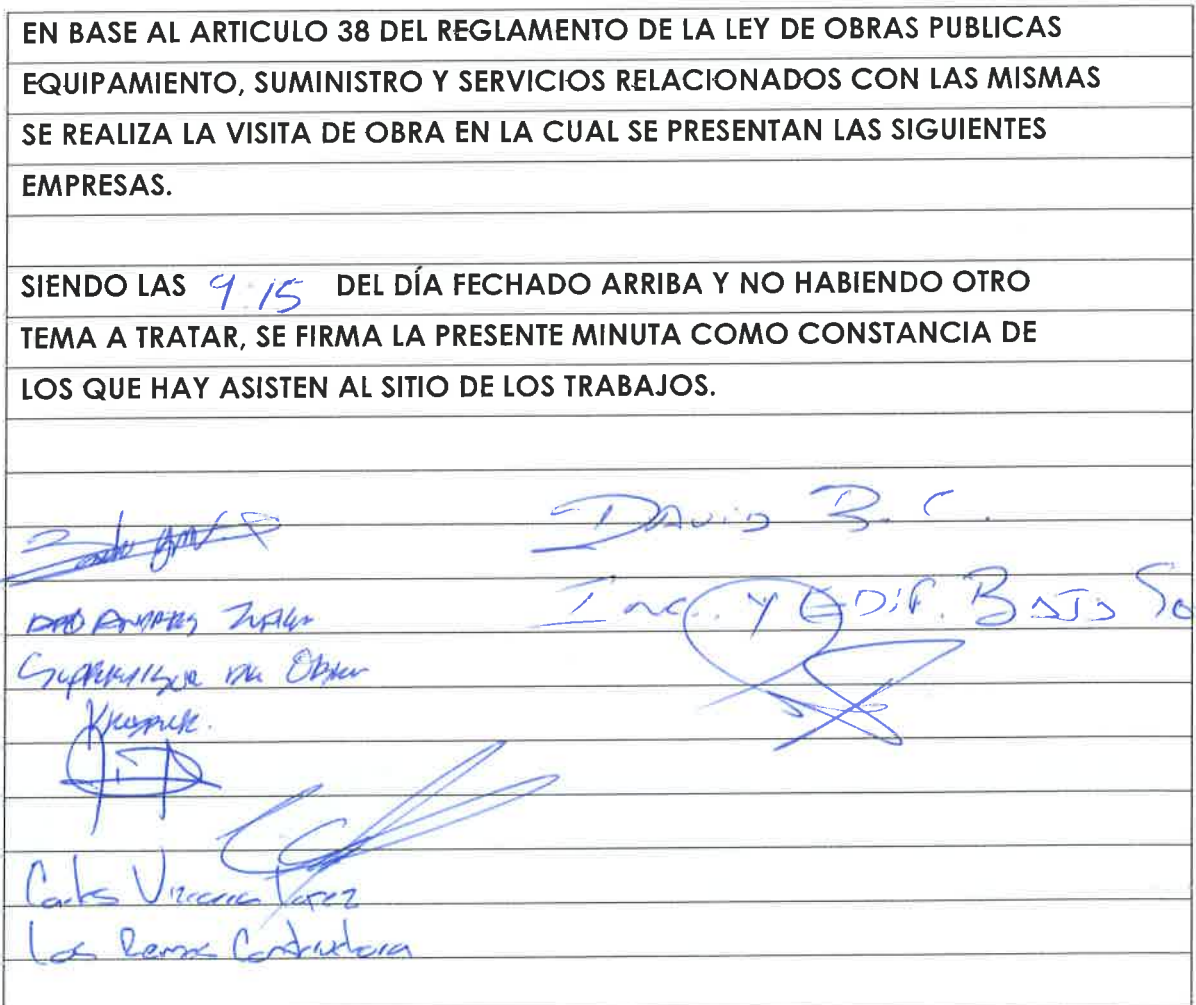 EN BASE AL ARTICULO 38 DEL REGLAMENTO DE LA LEY DE OBRAS PUBLICAS
EQUIPAMIENTO, SUMINISTRO Y SERVICIOS RELACIONADOS CON LAS MISMAS
SE REALIZA LA VISITA DE OBRA EN LA CUAL SE PRESENTAN LAS SIGUIENTES
EMPRESAS.
SIENDO LAS 9:15 DEL DÍA FECHADO ARRIBA Y NO HABIENDO OTRO
TEMA A TRATAR, SE FIRMA LA PRESENTE MINUTA COMO CONSTANCIA DE
LOS QUE HAY ASISTEN AL SITIO DE LOS TRABAJOS.
DAVID B. C.
Y EDIF. BAJA
Carlos
Los Constructora